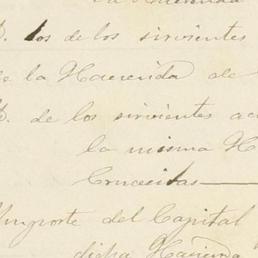 la Hacienda
D. los de los sirvientes
de la Hacienda de
D. de los sirvientes
la misma H
Crucecitas
Importe del Capital
dicha Hacienda